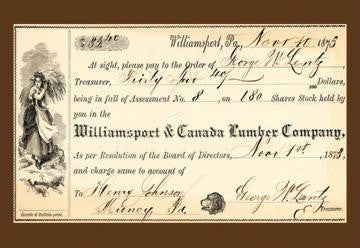 $ 32 40
Williamsport, Pa, Nov 10 1873
At sight, please pay to the Order of George W Lentz
Treasurer, Thirty two 40/100 Dollars,
being in full of Assessment No. 8, on 180 Shares Stock held by
you in the
Williamsport & Canada Lumber Company,
As per Resolution of the Board of Directors, Nov 1st 1873,
and charge same to account of
To Henry Johnson
Muncy Pa
George W Lentz
Treasurer.
Gazette & Bulletin print.